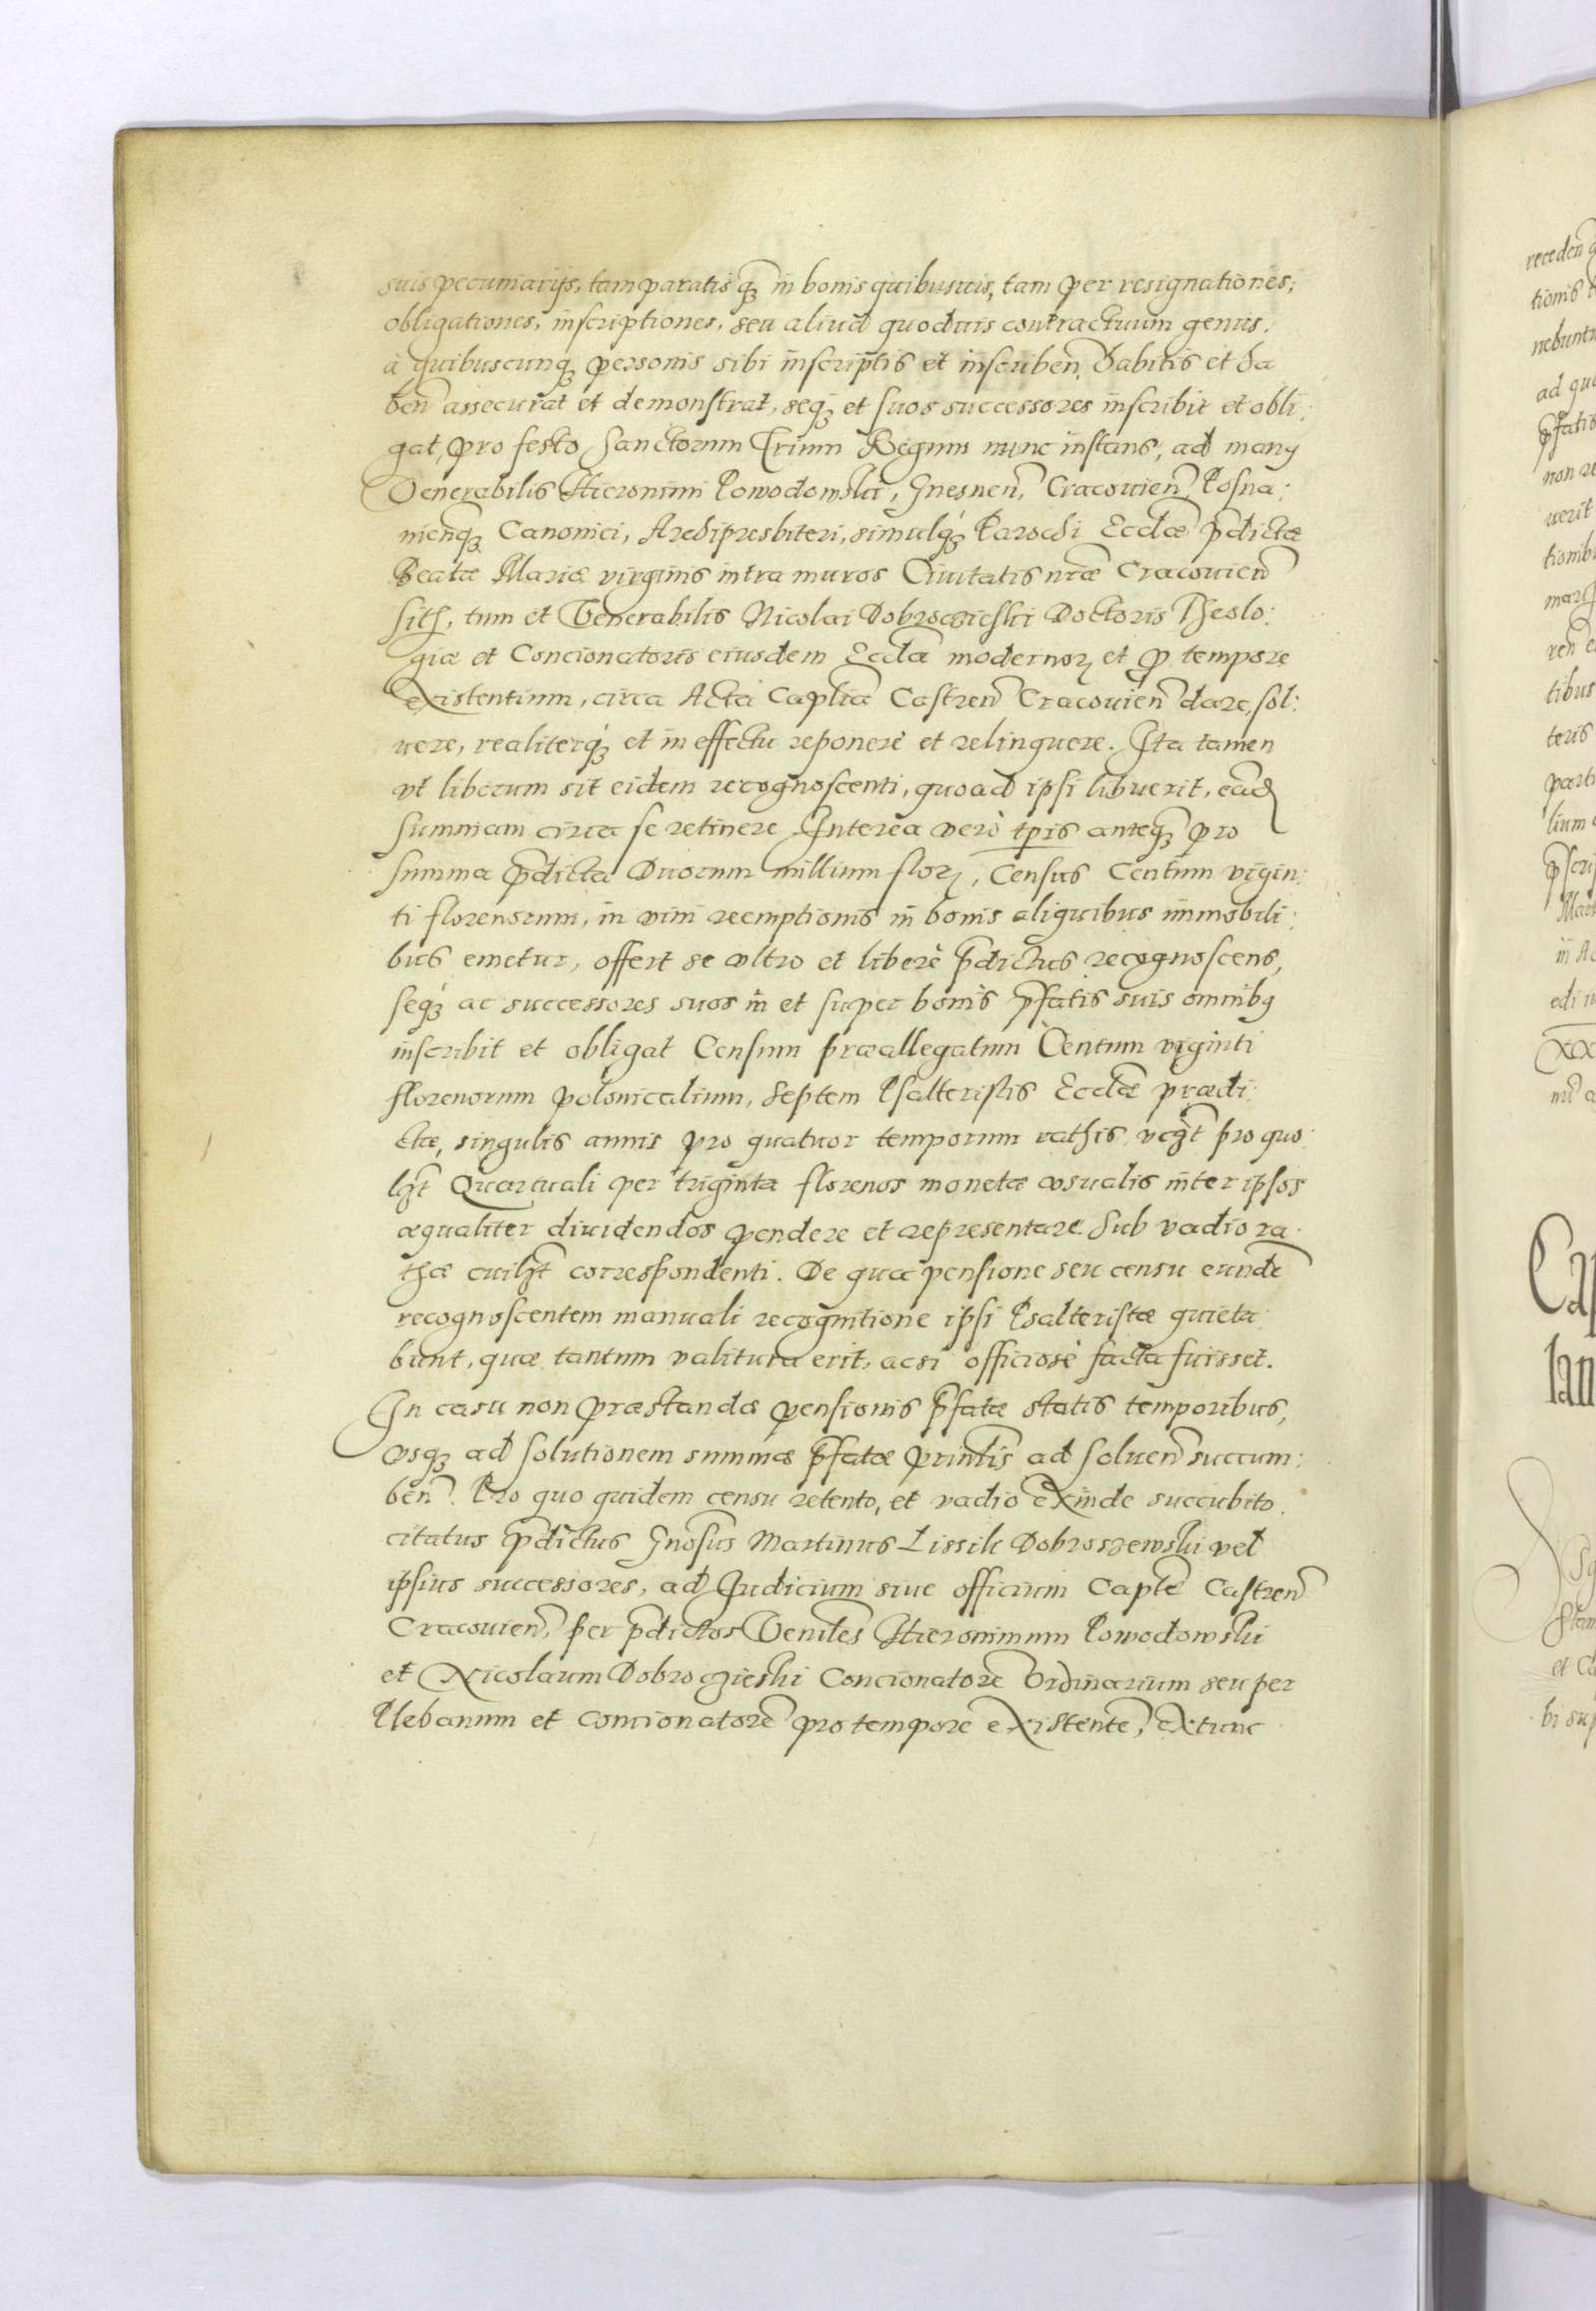 suis pecuniarijs, tam paratis q̃ȝ in bonis quibusuis, tam per resignationes,
obligationes, inscriptiones, seu aliud quoduis contractuum genus.
à quibuscunqȝ personis sibi inscriptis et inscriben̄, dabitis et da
ben̄ assecurat et demonstrat, seqȝ et suos successores inscribit et obli:
gat, pro festo Sanctorum Trium Regum nunc instans, ad manꝰ
Venerabilis Hieronimi Powodowski, Gnesnen̄, Cracouien̄, Posna:
nien̄qȝ Canonici, Archipresbiteri, simulqȝ Parochi Eccl̄æ p̄dictæ
Beatæ Mariæ virginis intra muros Ciuitatis nr̄æ Cracouien̄
sitꝭ, tum et Venerabilis Nicolai Dobrocieski Doctoris Theolo:
giæ et Concionatoris eiusdem Eccl̄æ modernoꝝ et ꝓ tempore
existentium, circa Acta Capl̄ia Castren̄ Cracouien̄ dare, sol:
uere, realiterqȝ et in effectu reponere et relinquere. Ita tamen
vt liberum sit eidem recognoscenti, quoad ipsi libuerit, eād
summam circa se retinere Interea verò tp̄is anteq̃ȝ pro
summa p̄dicta Duorum millium floꝝ, Census Centum vigin:
ti florenorum, in vim reemptionis in bonis aliquibus immobili:
bus emetur, offert se vltro et liberè p̄dictus recognoscens,
seqȝ ac successores suos in et super bonis p̄fatis suis omnibꝰ
inscribit et obligat Censum præallegatum Centum viginti
florenorum polonicalium, Septem Psalteristis Eccl̄æ prædi:
ctæ, singulis annis pro quatuor temporum rathis vꝫt pro quo:
lꝫt Quartuali per triginta florenos monetæ vsualis inter ipsos
æqualiter diuidendos pendere et representare. Sub vadio ra:
thæ cuilꝫt correspondenti. De qua pensione seu censu eundē
recognoscentem manuali recognitione ipsi Psalteristæ quieta:
bunt, quæ tantum valitura erit, acsi officiosè facta fuisset.
In casu non præstandæ pensionis p̄fatæ statis temporibus,
vsqȝ ad solutionem summæ p̄fatæ prin̄lis ad soluen̄ succum:
ben̄. Pro quo quidem censu retento, et vadio exinde succubito.
citatus p̄dictus Gn̄osus Martinus Lissik Dobroszewski vel
ipsius successores, ad Judicium siue officium Capl̄e Castren̄
Cracouien̄, per p̄dictos Ven̄iles Hieronimum Powodowski
et Nicolaum Dobrocieski Concionatorē Ordinarium seu per
Plebanum et Concionatorē pro tempore existentē, extunc